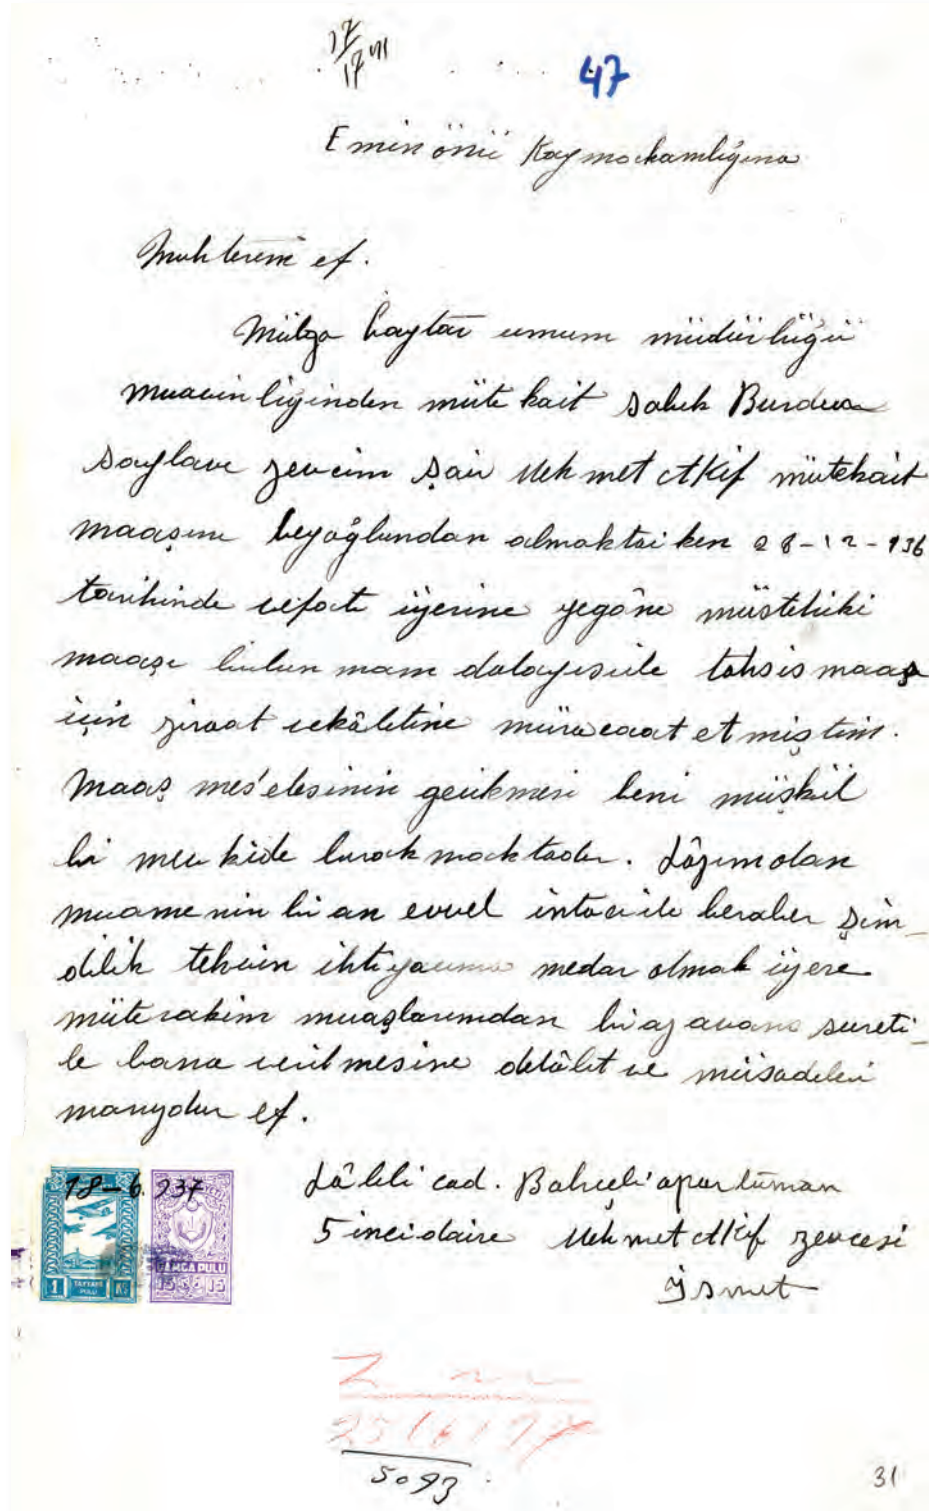 17
17 VI
47
Eminönü Kaymakamlığına
Muhterem ef.
Mülga baytar umum müdürlüğü
muavinliğinden mütekait sabık Burdur
saylavı zevcim şair Mehmet Akif mütekait
maaşını beyoğlundan almakta iken 28-12-936
tarihinde vefatı üzerine yegâne müstehiki
maaşı bulunmam dolayısile tahsis maaş
için ziraat vekâletine müracaat etmiştim.
Maaş mes'elesinin gecikmesi beni müşkül
bi mevkide bırakmaktadır. Lâzım olan
muamenin bi an evvel intacile beraber şim-
dilik tehvin ihtiyacıma medar olmak üzere
müterakim muaşlarımdan biaz avans sureti-
le bana verilmesine delâlet ve müsadeleri
marızdur ef.
18-6.937
Lâleli cad. Bahçeli apartıman
5 inci daire Mehmet Akif zevcesi
İsmet
1 TAYYARE PULU Kş
DAMGA PULU
15 15
5093
31